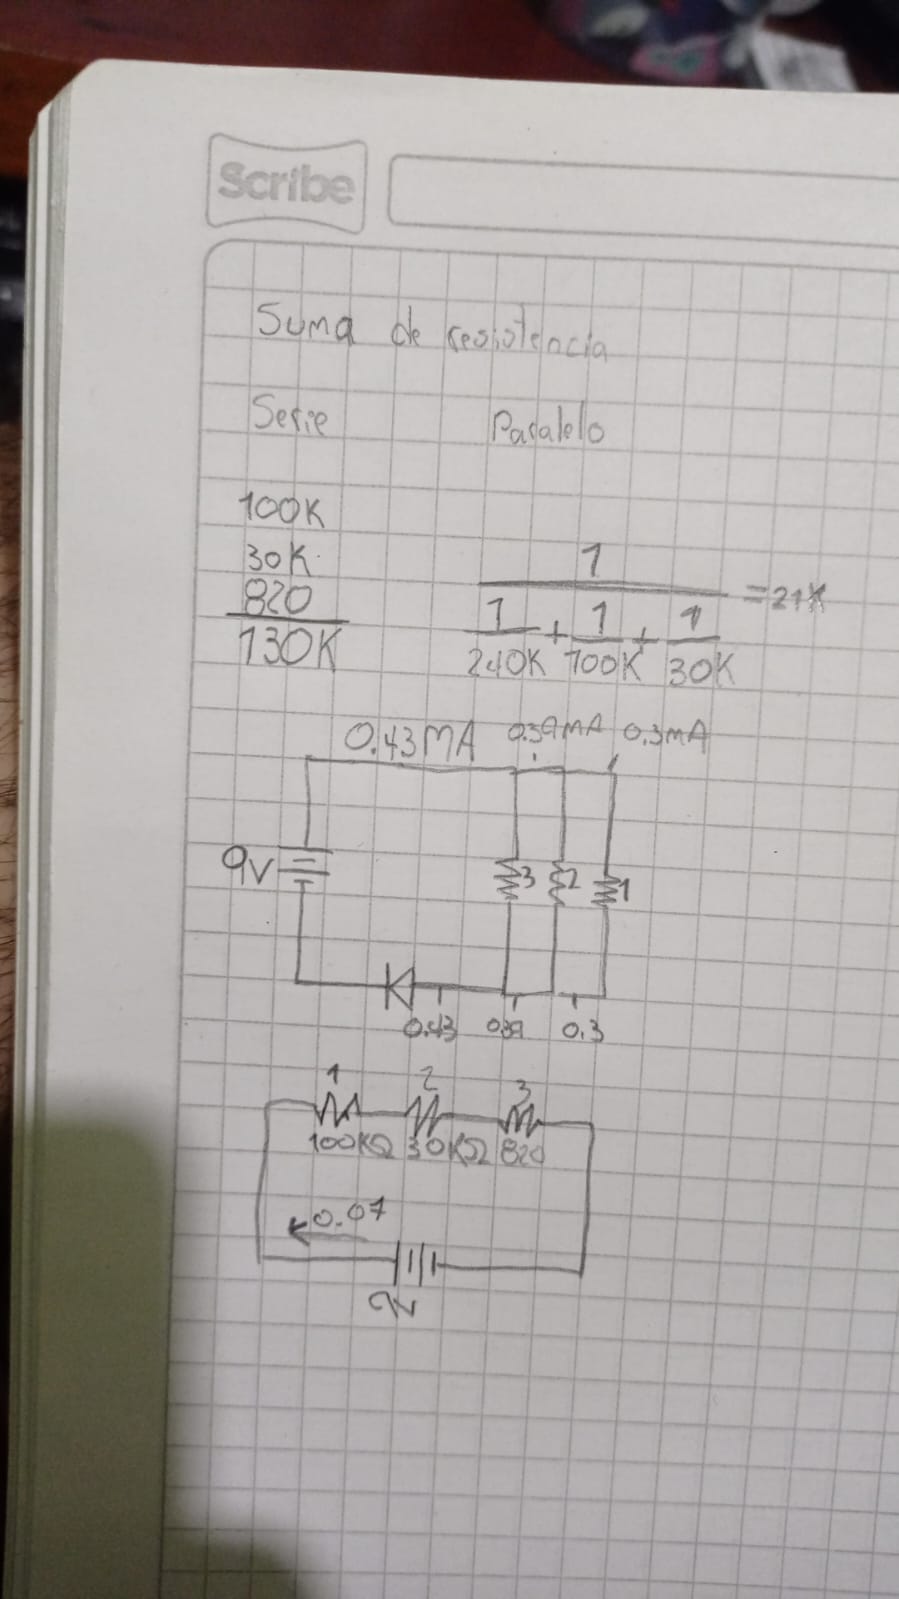 Scribe
Suma de resistencia
Serie Paralelo
100K
30K
820
130K
1
1 + 1 + 1 = 21K
240K 100K 30K
0.43mA 0.39mA 0.3mA
9V 3 2 1
0.43 0.39 0.3
1 2 3
100KΩ 30KΩ 820
0.07
9V